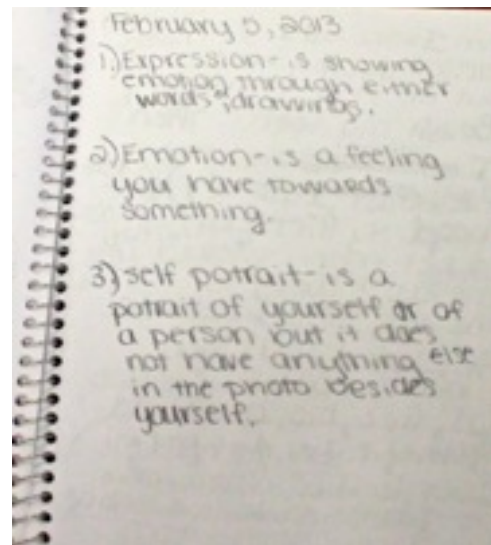 February 5, 2013
1.) Expression- is showing
emotion through either
words, drawings.
2) Emotion- is a feeling
you have towards
something.
3) self potrait- is a
potrait of yourself or of
a person but it does
not have anything else
in the photo besides
yourself.